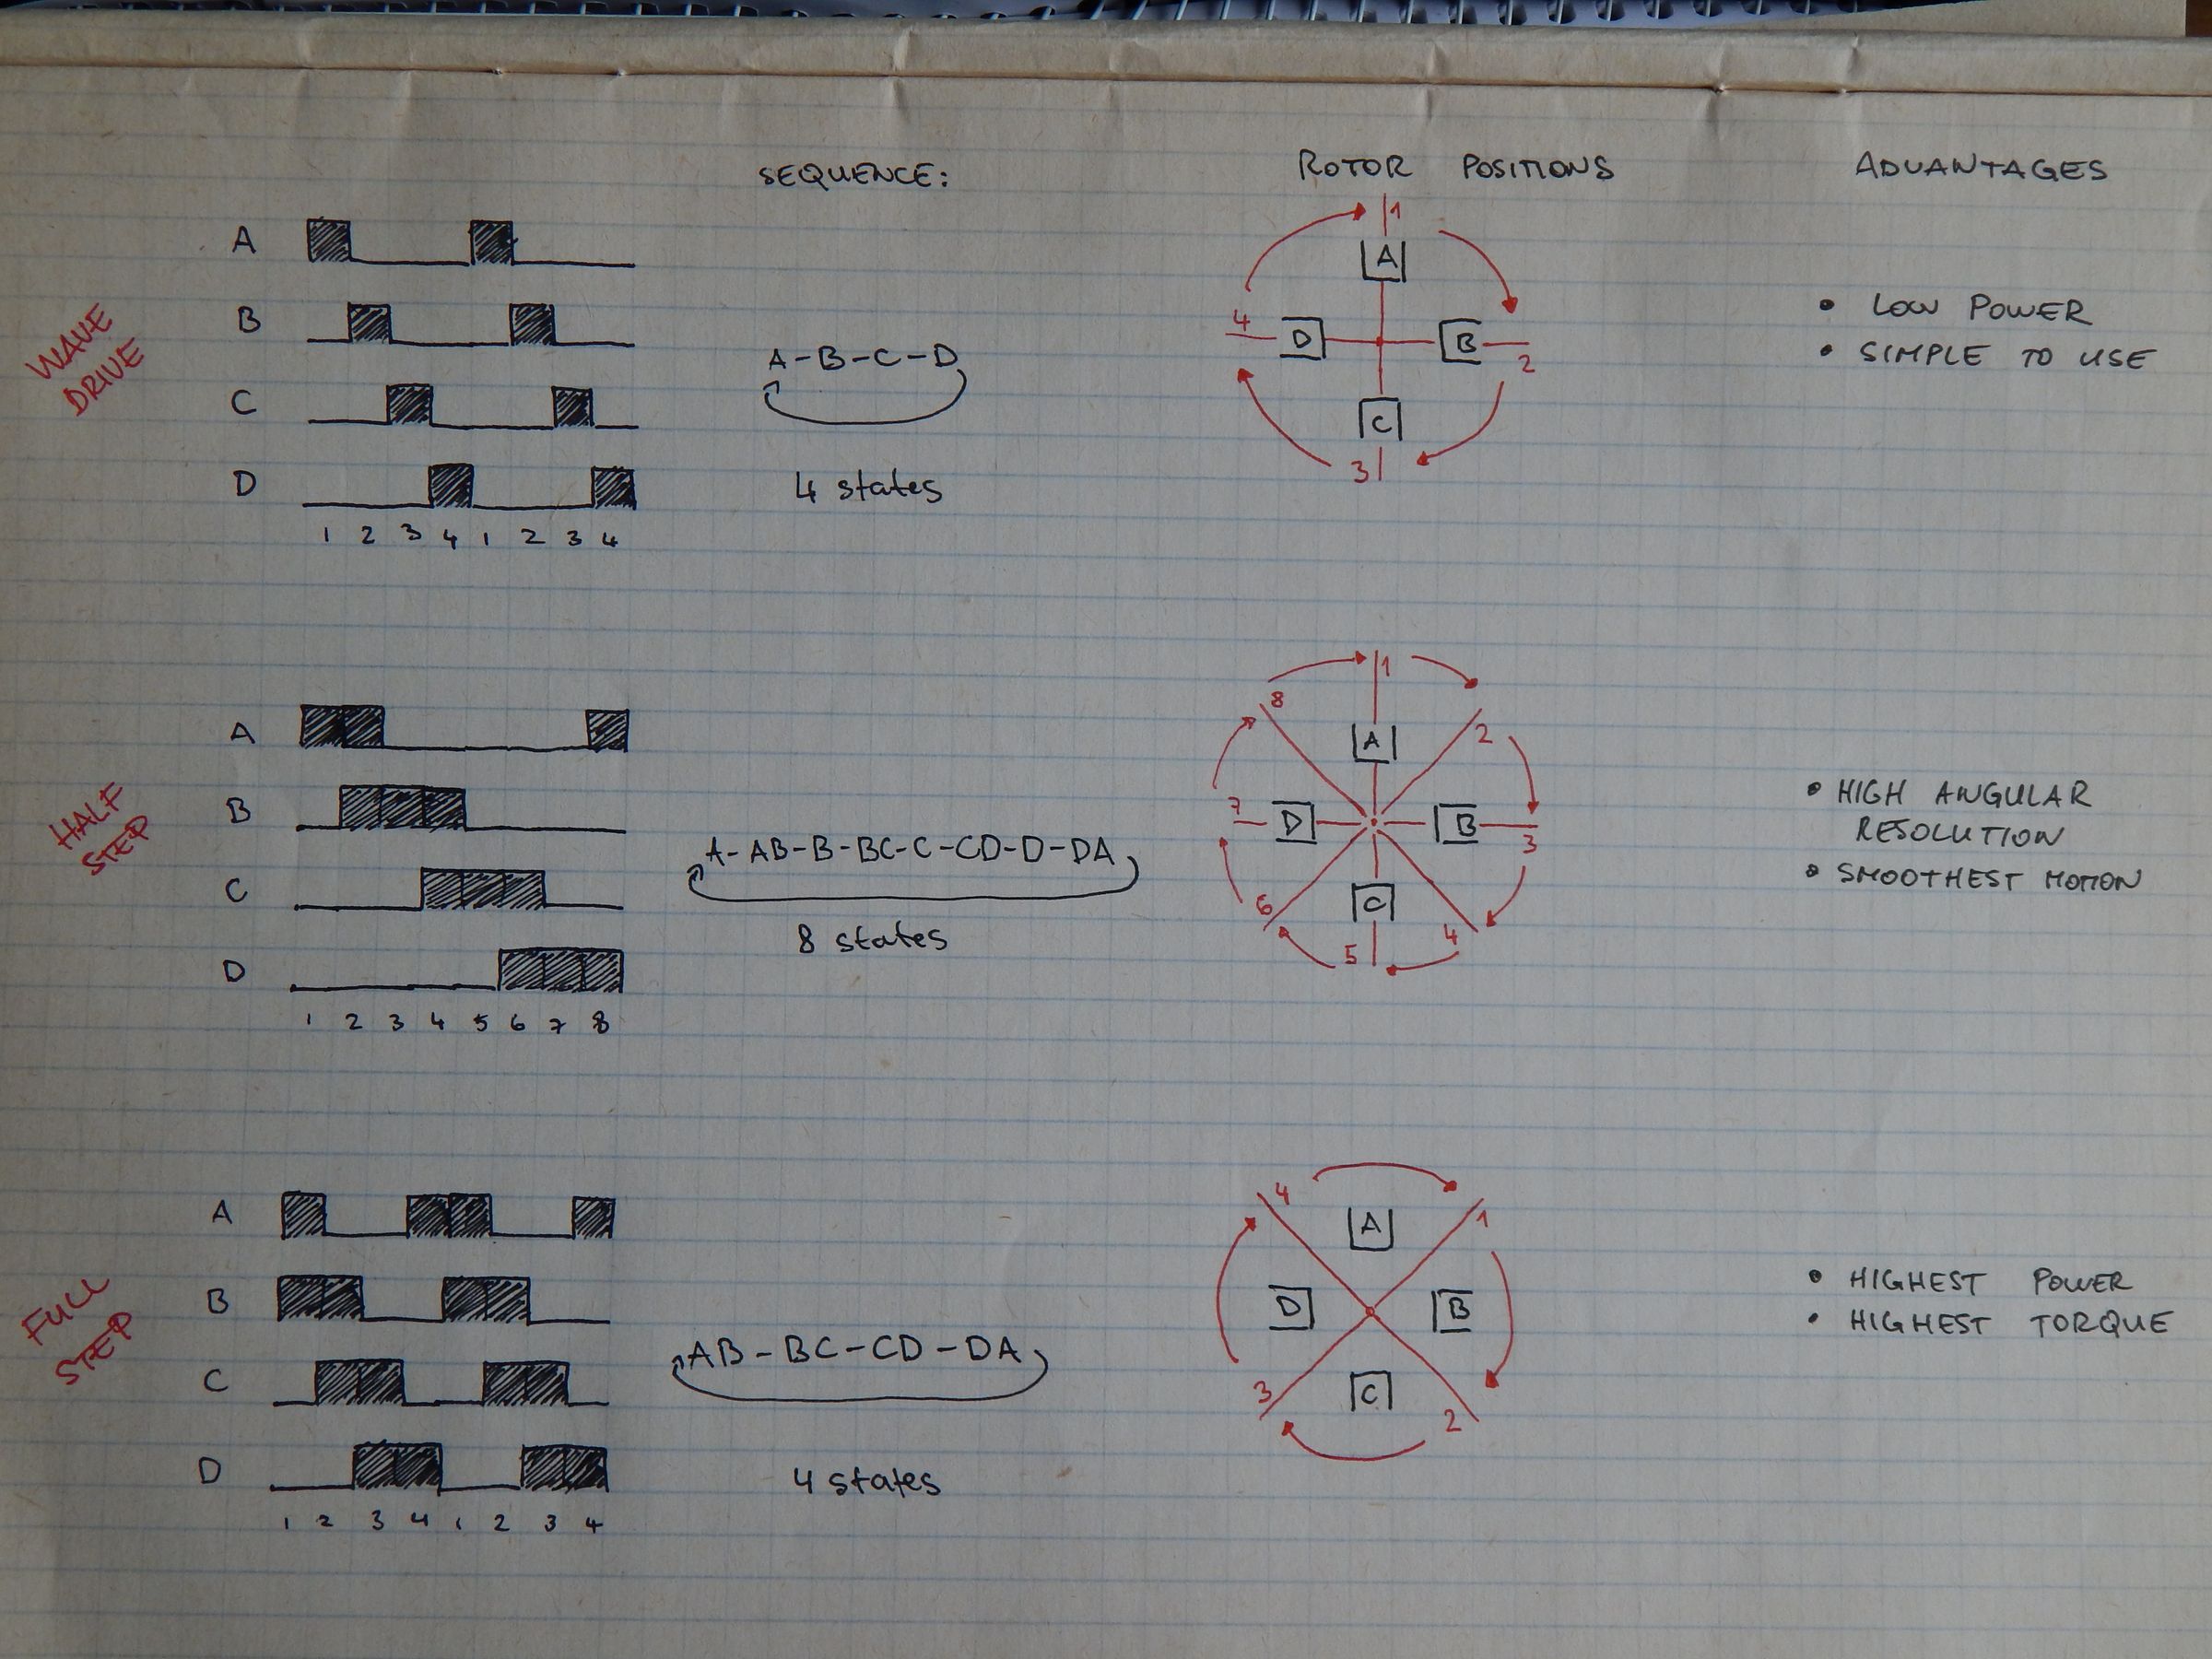 SEQUENCE: ROTOR POSITIONS ADVANTAGES
WAVE
DRIVE
A
B
C
D
1 2 3 4 1 2 3 4
A-B-C-D
4 states
1
A
4 D B 2
C
3
• LOW POWER
• SIMPLE TO USE
HALF
STEP
A
B
C
D
1 2 3 4 5 6 7 8
A-AB-B-BC-C-CD-D-DA
8 states
1
8 2
A
7 D B 3
C
6 4
5
• HIGH ANGULAR
RESOLUTION
• SMOOTHEST MOTION
FULL
STEP
A
B
C
D
1 2 3 4 1 2 3 4
AB-BC-CD-DA
4 states
4 1
A
D B
C
3 2
• HIGHEST POWER
• HIGHEST TORQUE